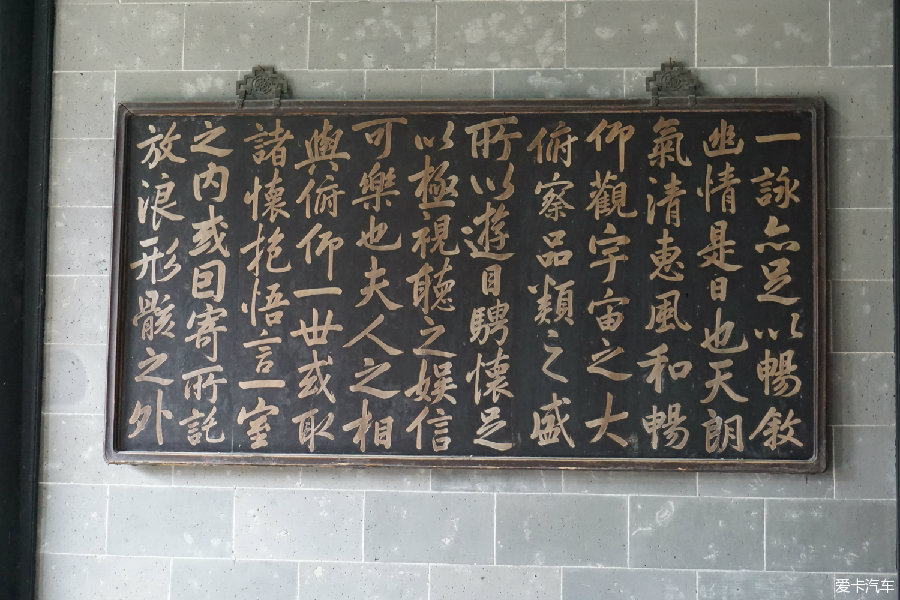 一詠亦足以暢敘
幽情是日也天朗
氣清惠風和暢
仰觀宇宙之大
俯察品類之盛
所以遊目騁懷足
以極視聽之娛信
可樂也夫人之相
與俯仰一世或取
諸懷抱悟言一室
之內或因寄所託
放浪形骸之外
爱卡汽车